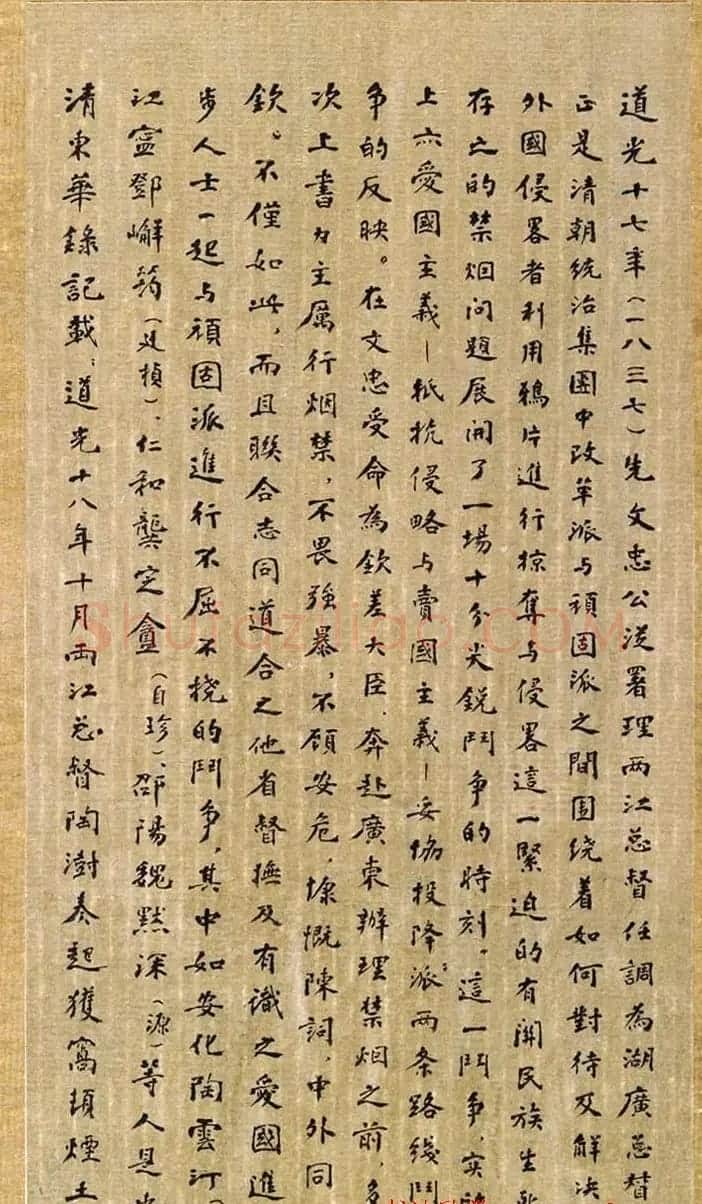 道光十七年(一八三七)先文忠公從署理兩江总督任調為湖廣总督
正是清朝統治集團中改革派与頑固派之間圍绕着如何對待及解决
外國侵畧者利用鴉片進行掠奪与侵畧這一緊迫的有関民族生死
存亡的禁烟问題展開了一場十分尖鋭鬥争的時刻。這一鬥争,实
上亦愛國主義—抵抗侵略与賣國主義—妥协投降派两条路线鬥
争的反映。在文忠受命為欽差大臣、奔赴廣東辦理禁烟之前,多
次上書力主厲行烟禁,不畏強暴,不顧安危,慷慨陳詞,中外同
欽。不僅如此,而且聯合志同道合之他省督撫及有識之愛國進
步人士一起与頑固派進行不屈不挠的鬥争,其中如安化陶雲汀
江寧鄧嶰筠(廷楨)、仁和龔定盦(自珍)、邵陽魏黙深(源)等人是
清東華錄記載:道光十八年十月兩江总督陶澍奏起獲窩頓煙土